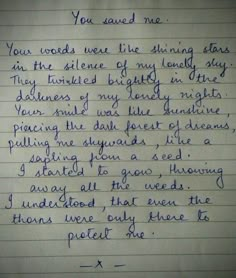 You saved me.
Your words were like shining stars
in the silence of my lonely sky.
They twinkled brightly in the
darkness of my lonely nights.
Your smile was like sunshine,
piercing the dark forest of dreams,
pulling me skywards, like a
sapling from a seed.
I started to grow, throwing
away all the weeds.
I understood, that even the
thorns were only there to
protect me.
—x—